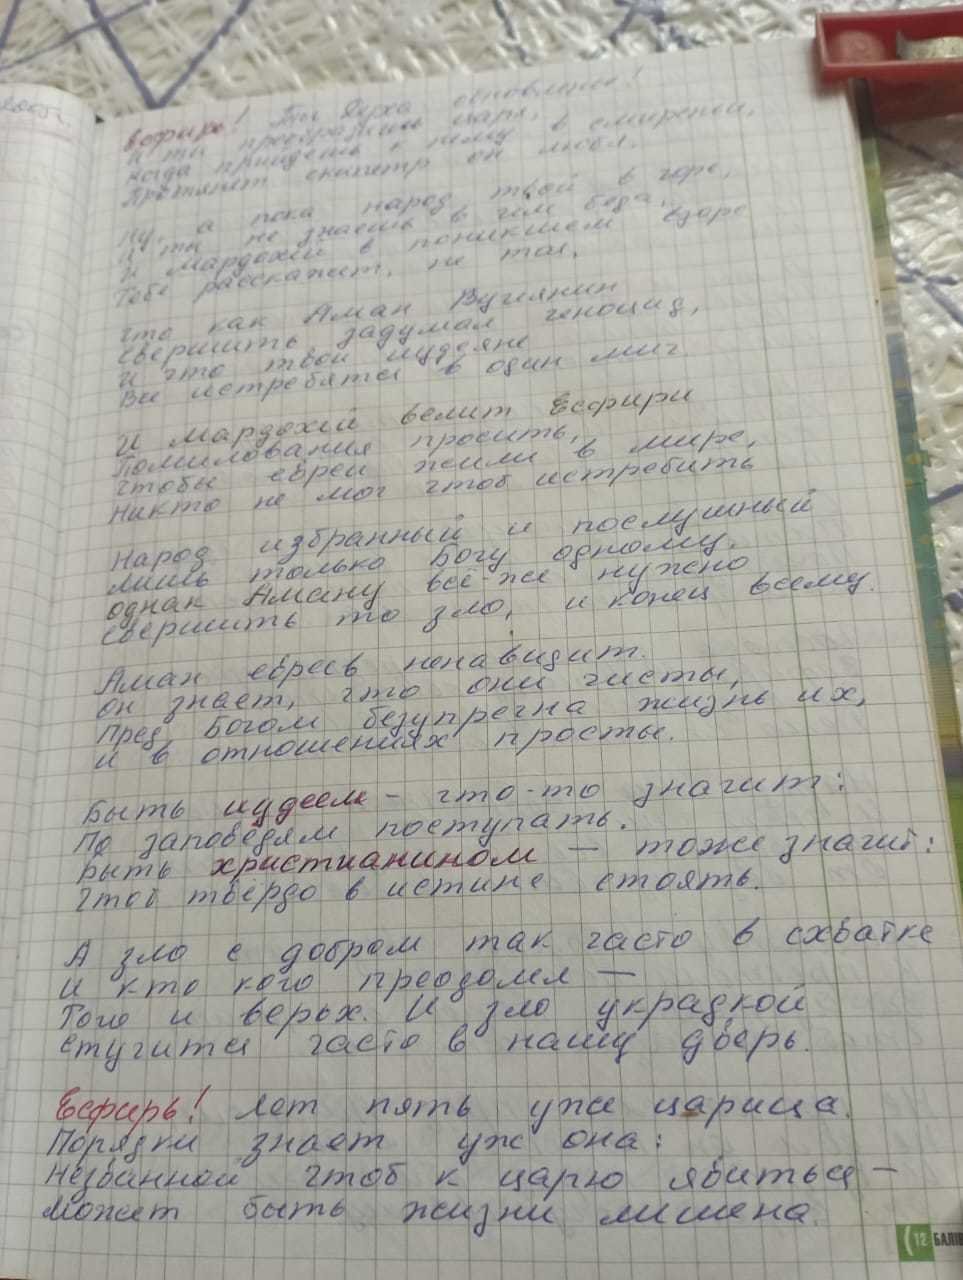 2005г.
Есфирь! Ты Духа обновленье!
И ты преобразишь царя,
когда придешь к нему в смиреньи,
Протянет скипетр он любя.
Ну, а пока народ твой в горе,
И ты не знаешь в чём беда,
И Мардохей в поникшем взоре
Тебе расскажет, не тая,
Что как Аман Вугеянин
Свершить задумал геноцид,
И что твои иудеяне
Все истребятся в один миг.
И Мардохей велит Есфири
Помилования просить,
Чтобы евреи жили в мире,
Никто не мог чтоб истребить
Народ избранный и послушный
лишь только Богу одному.
однак Аману всё-же нужно
свершить то зло, и конец всему.
Аман евреев ненавидит.
он знает, что они чисты,
Пред Богом безупречна жизнь их,
и в отношениях просты.
Быть иудеем - что-то значит:
По заповедям поступать.
Быть христианином - тоже значит:
Чтоб твёрдо в истине стоять.
А зло с добром так часто в схватке
И кто кого преодолел -
Того и верьх. И зло украдкой
стучится часто в нашу дверь.
Есфирь! лет пять уже царица.
Порядки знает уж она:
Незванной чтоб к царю явиться -
Может быть жизни лишена.
12 БАЛІВ